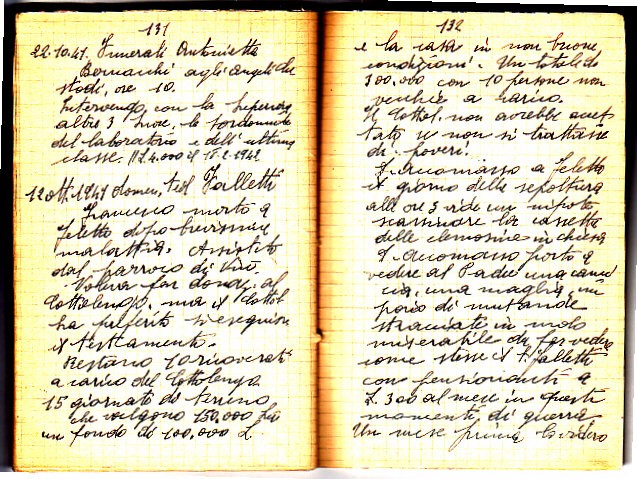 131
22.10.41. Funerale Antonietta
Bernacchi agli Angeli Cu
stodi, ore 10.
Intervengo, con la superiora
altre 3 suore, le sordomute
del laboratorio e dell'ultima
classe. L 4.000 il 18.2.1942
12 ott. 1941 domen. Falletti
Francesco morto a
Feletto dopo brevissima
malattia. Assistito
dal parroco di
Voleva far donaz. al
Cottolengo, ma il Cottol
ha preferito si eseguisse
il testamento.
Restano 10 ricoverati
a carico del Cottolengo
15 giornate di terreno
che valgono 150.000 più
un fondo di 100.000 L.
132
e la casa in non buone
condizioni. Un totale di
300.000 con 10 persone non
vecchie a carico.
Il Cottol. non avrebbe accet
tato se non si trattasse
di poveri.
D. Accomasso a Feletto
il giorno della sepoltura
alle ore 3 vide un nipote
scassinare la cassetta
delle elemosine in chiesa
D. Accomasso portò a
vedere al Padre una cami
cia, una maglia, un
paio di mutande
stracciate in modo
miserabile da far vedere
come stesse il t. Falletti
con pensionanti a
L. 300 al mese in questi
momenti di guerra
Un mese prima